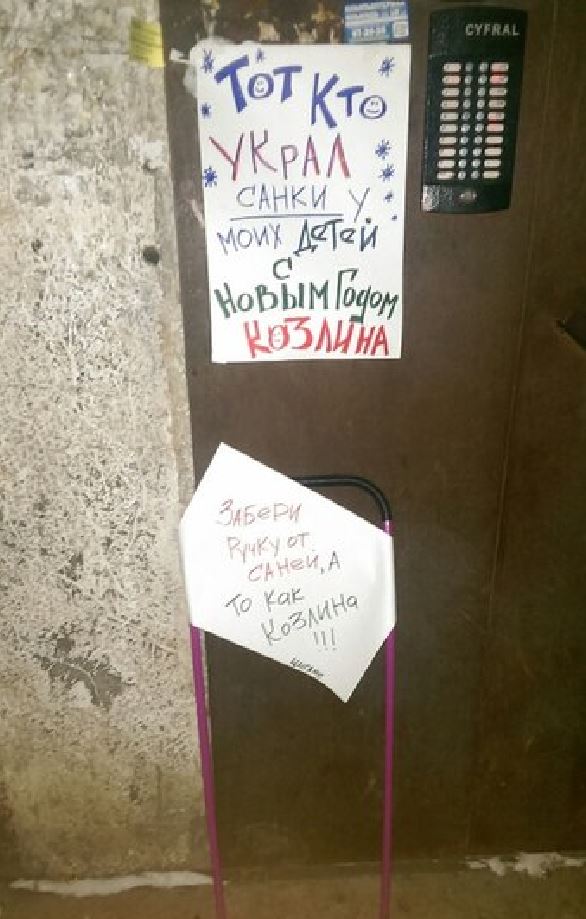 CYFRAL
Тот Кто
УКРАЛ
САНКИ У
МОИХ ДеТеЙ
С
НОВЫМ Годом
КОЗЛИНА
ЗАБЕРИ
Ручку от
САНей, А
ТО КАК
КОЗЛИНА
!!!